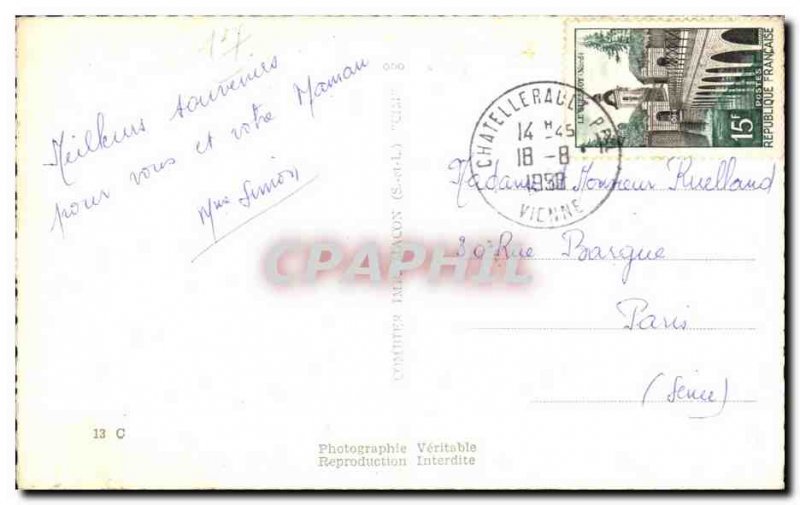 Meilleurs souvenirs
pour vous et votre Maman
Mme Simon
COMBIER IMP. MACON (S.-et-L.) "CIM"
CHATELLERAULT PPAL
14 H 45
18 - 8
1958
VIENNE
LE QUESNOY (Nord)
15F
POSTES
REPUBLIQUE FRANÇAISE
Madame Monsieur Ruelland
Rue Bargue
Paris
(Seine)
CPAPHIL
13 C
Photographie Véritable
Reproduction Interdite